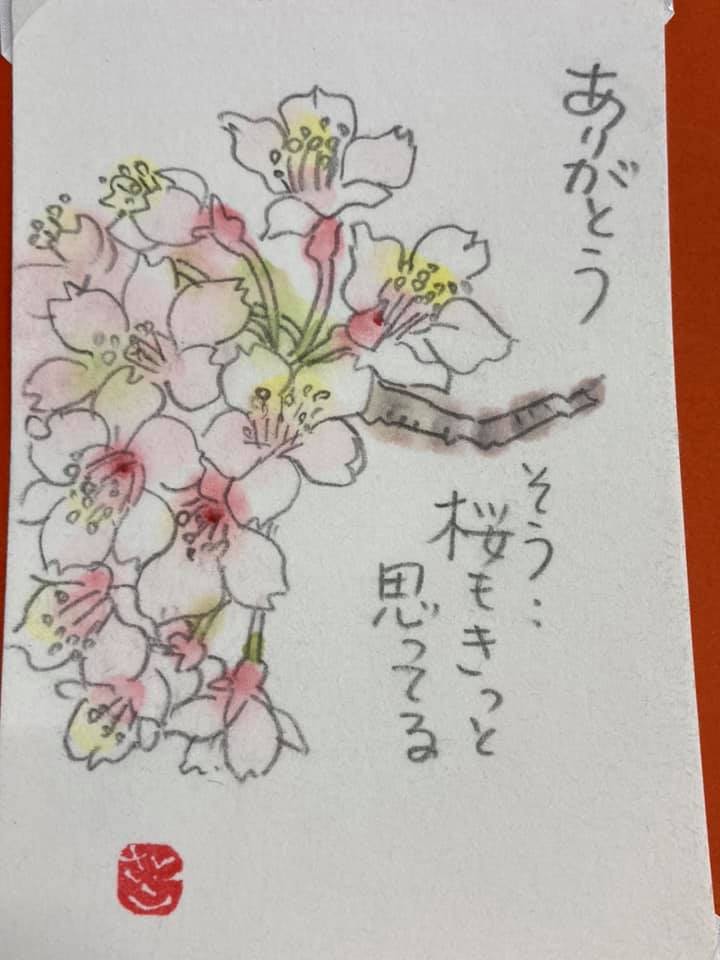 ありがとう
そう‥
桜もきっと
思ってる